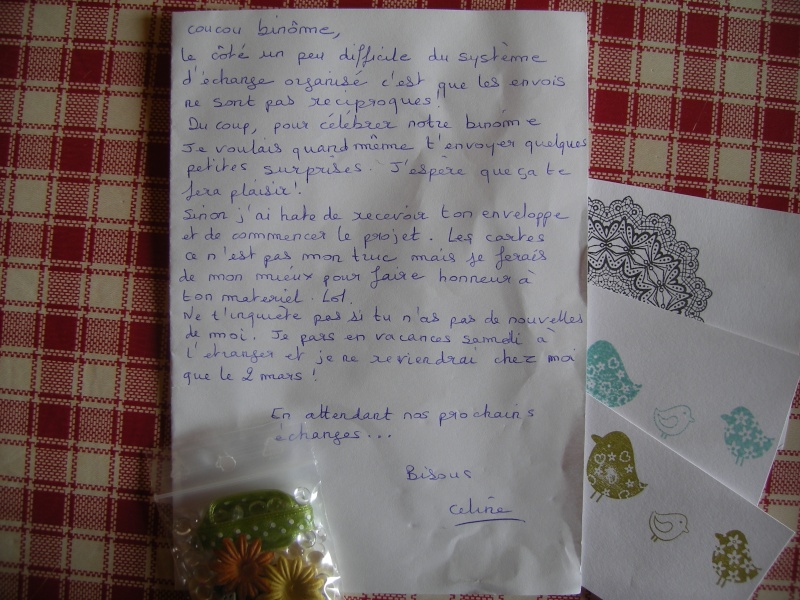 coucou binôme,
le côté un peu difficile du système
d'échange organisé c'est que les envois
ne sont pas reciproques!
Du coup, pour célébrer notre binôme
Je voulais quand même t'envoyer quelques
petites surprises. J'espère que ça te
fera plaisir!.
Sinon j'ai hate de recevoir ton enveloppe
et de commencer le projet. Les cartes
ce n'est pas mon truc mais je ferais
de mon mieux pour faire honneur à
ton materiel. Lol.
Ne t'inquiète pas si tu n'as pas de nouvelles
de moi. Je pars en vacances samedi à
l'etranger et je ne reviendrai chez moi
que le 2 mars!
En attendant nos prochains
échanges...
Bisous
Celine